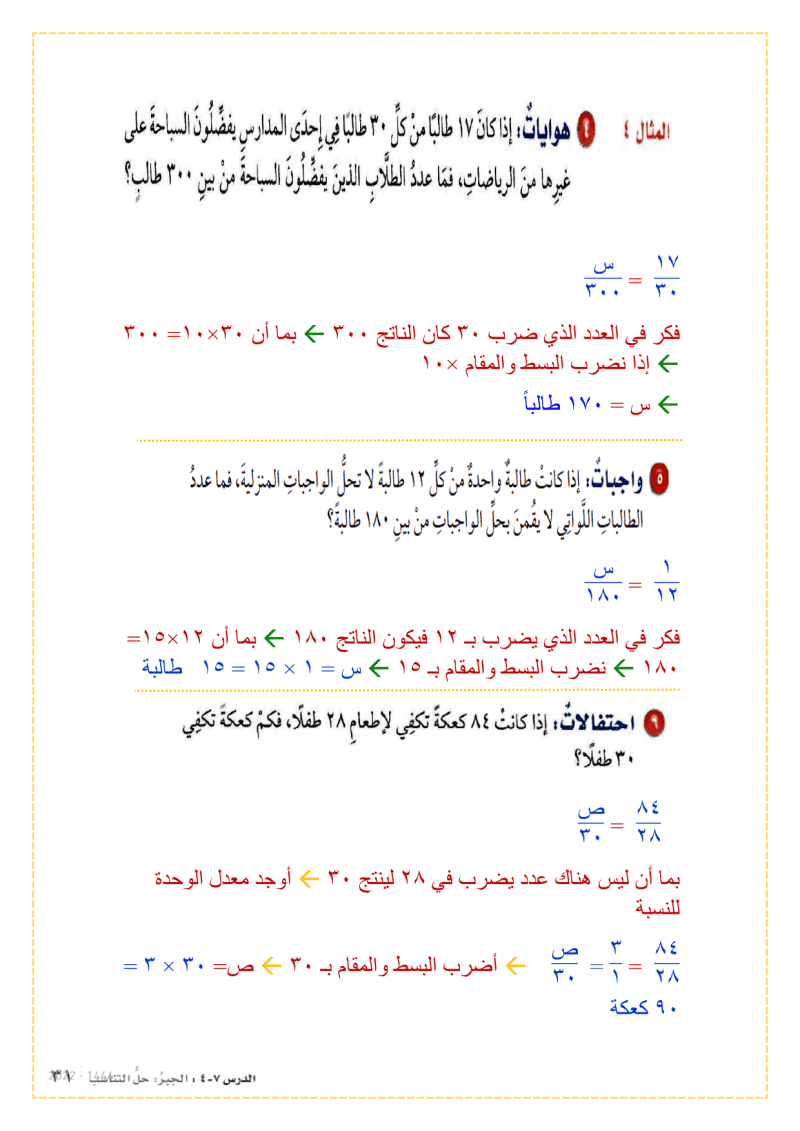 المثال ٤ ٤ هواياتٌ: إذا كانَ ١٧ طالبًا منْ كلِّ ٣٠ طالبًا فِي إحدَى المدارسِ يفضِّلُونَ السباحةَ على
غيرِها منَ الرياضاتِ، فمَا عددُ الطلَّابِ الذينَ يفضِّلُونَ السباحةَ منْ بينِ ٣٠٠ طالبٍ؟
١٧/٣٠ = س/٣٠٠
فكر في العدد الذي ضرب ٣٠ كان الناتج ٣٠٠ ← بما أن ٣٠×١٠= ٣٠٠
← إذا نضرب البسط والمقام ×١٠
← س = ١٧٠ طالباً
٥ واجباتٌ: إذا كانتْ طالبةٌ واحدةٌ منْ كلِّ ١٢ طالبةً لا تحلُّ الواجباتِ المنزليةَ، فما عددُ
الطالباتِ اللَّواتِي لا يقُمنَ بحلِّ الواجباتِ منْ بينِ ١٨٠ طالبةً؟
١/١٢ = س/١٨٠
فكر في العدد الذي يضرب بـ ١٢ فيكون الناتج ١٨٠ ← بما أن ١٢×١٥=
١٨٠ ← نضرب البسط والمقام بـ ١٥ ← س = ١ × ١٥ = ١٥ طالبة
٦ احتفالاتٌ: إذا كانتْ ٨٤ كعكةً تكفِي لإطعامِ ٢٨ طفلًا، فكمْ كعكةً تكفِي
٣٠ طفلًا؟
٨٤/٢٨ = ص/٣٠
بما أن ليس هناك عدد يضرب في ٢٨ لينتج ٣٠ ← أوجد معدل الوحدة
للنسبة
٨٤/٢٨ = ٣/١ = ص/٣٠ ← أضرب البسط والمقام بـ ٣٠ ← ص= ٣٠ × ٣ =
٩٠ كعكة
الدرس ٧-٤ : الجبرُ: حلُّ التناسب